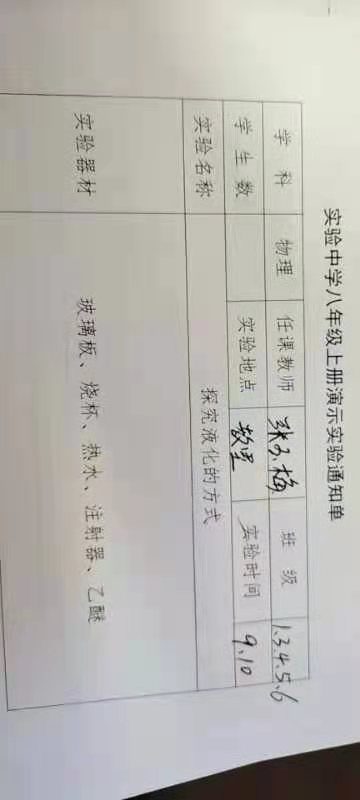 实验中学八年级上册演示实验通知单
学 科 物理 任课教师 张 梅 班 级 1.3.4.5.6
学 生 数 实验地点 教室 实验时间 9.10
实验名称 探究液化的方式
实验器材 玻璃板、烧杯、热水、注射器、乙醚